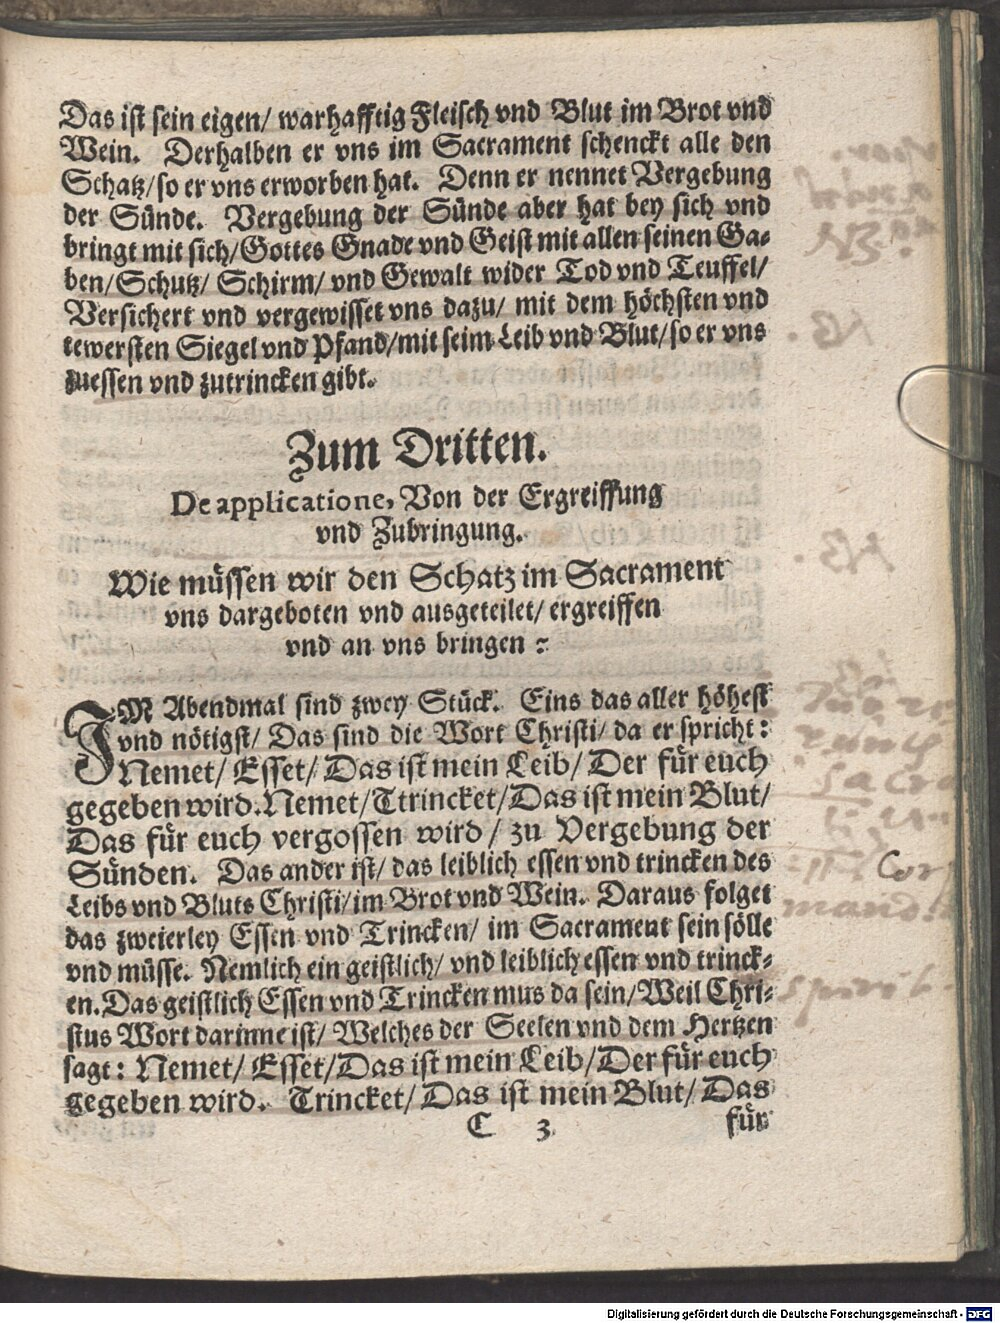 Das ist sein eigen/ warhafftig Fleisch vnd Blut im Brot vnd
Wein. Derhalben er vns im Sacrament schenckt alle den
Schatz/so er vns erworben hat. Denn er nennet Vergebung
der Sünde. Vergebung der Sünde aber hat bey sich vnd
bringt mit sich/Gottes Gnade vnd Geist mit allen seinen Ga-
ben/Schutz/ Schirm/ vnd Gewalt wider Tod vnd Teuffel/
Versichert vnd vergewisset vns dazu/ mit dem höchsten vnd
tewersten Siegel vnd Pfand/mit seim Leib vnd Blut/so er vns
zuessen vnd zutrincken gibt.
Zum Dritten.
De applicatione, Von der Ergreiffung
vnd Zubringung.
Wie müssen wir den Schatz im Sacrament
vns dargeboten vnd ausgeteilet/ ergreiffen
vnd an vns bringen?
IM Abendmal sind zwey Stück. Eins das aller höhest
vnd nötigst/ Das sind die Wort Christi/ da er spricht:
Nemet/ Esset/ Das ist mein Leib/ Der für euch
gegeben wird. Nemet/Ttrincket/Das ist mein Blut/
Das für euch vergossen wird/ zu Vergebung der
Sünden. Das ander ist/ das leiblich essen vnd trincken des
Leibs vnd Bluts Christi/im Brot vnd Wein. Daraus folget
das zweierley Essen vnd Trincken/ im Sacrament sein sölle
vnd müsse. Nemlich ein geistlich/ vnd leiblich essen vnd trinck-
en. Das geistlich Essen vnd Trincken mus da sein/Weil Chri-
stus Wort darinne ist/ Welches der Seelen vnd dem Hertzen
sagt: Nemet/ Esset/Das ist mein Leib/Der für euch
gegeben wird. Trincket/ Das ist mein Blut/ Das
C 3 für
Digitalisierung gefördert durch die Deutsche Forschungsgemeinschaft - DFG